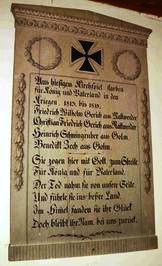 Aus hiesigem Kirchspiel starben
für König und Vaterland in den
Kriegen 1813 bis 1815.
Friedrich Wilhelm Gericke aus
Christian Friedrich Gericke aus
Heinrich Schmirgruber aus Golm.
Benedikt Zech aus Golm.
Sie zogen hier mit Gott zum Streite
Für König und für Vaterland.
Der Tod nahm sie von unsrer Seite
Und führte sie ins beßre Land.
Im Himmel fanden sie ihr Glück
Doch bleibt ihr Nam. bei uns zurück.